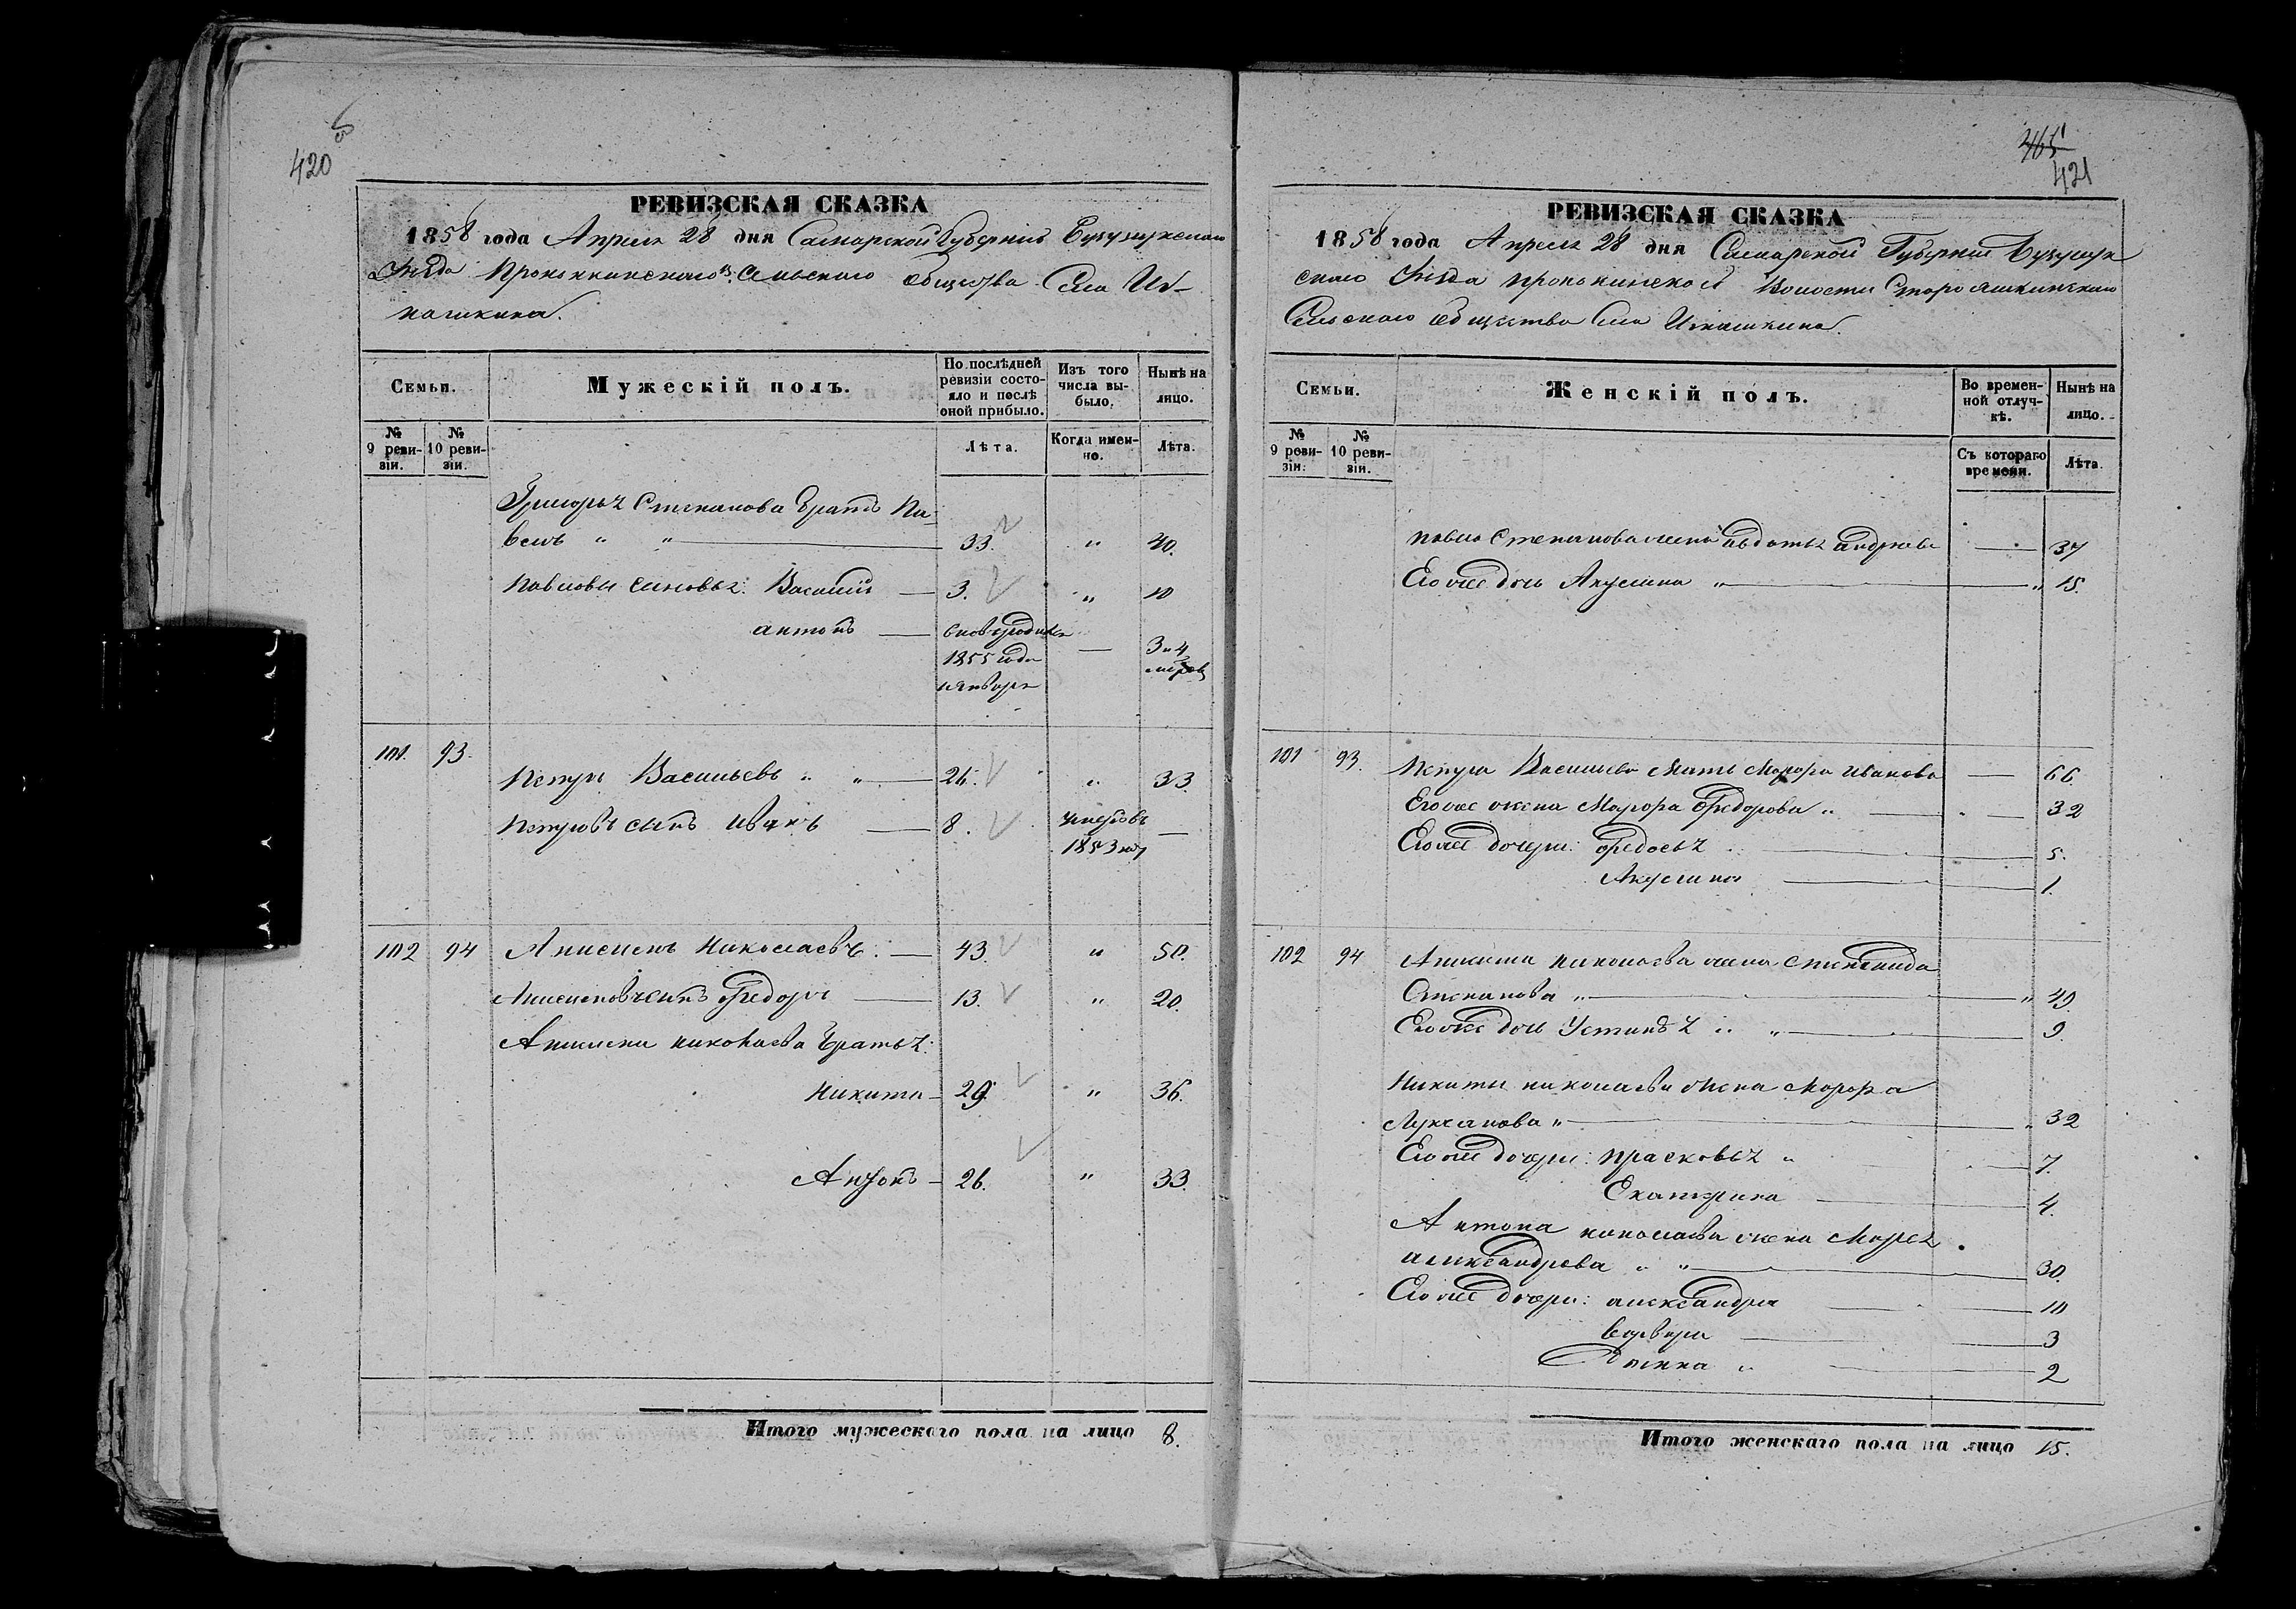 420
465
421
РЕВИЗСКАЯ СКАЗКА
1858 года Апреля 28 дня Самарской Губернии Бузулукскаго
Уезда Пронькинскаго Сельскаго общества Села Иг-
нашкина.
Семьи.
Мужескій полъ.
По послѣдней ревизіи состояло и послѣ оной прибыло.
Изъ того числа выбыло.
Нынѣ на лицо.
№ 9 ревизіи.
№ 10 ревизіи.
Лѣта.
Когда именно.
Лѣта.
Григорья Степанова братъ Па-
велъ " " 33. " 40.
Павловы сыновья: Василий 3. " 10
антонъ вновьродился — 3 и 4
1855 года месяц
января
101. 93.
Петръ Васильевъ " " 26. " 33.
Петровъ сынъ Иванъ 8. умеръ въ —
1853 году
102 94 Анисимъ Николаевъ. 43. " 50.
Анисимовъ сынъ Федоръ 13. " 20.
Анисима николаева братья:
Никита 29. " 36.
Антонъ 26. " 33.
Итого мужескаго пола на лицо 8.
РЕВИЗСКАЯ СКАЗКА
1858 года Апреля 28 дня Самарской Губернии Бузулук
скаго Уезда пронькинской Волости Старояшкинскаго
Сельскаго общества Села Игнашкина.
Семьи.
Женскій полъ.
Во временной отлучкѣ.
Нынѣ на лицо.
№ 9 ревизіи.
№ 10 ревизіи.
Съ котораго времени.
Лѣта.
павла Степанова жена авдотья андреева — 37
Его же дочь Акулина " " 15.
101 93. Петра Васильева мать Марфа Иванова — 66.
Его же жена Марфа Федорова " — 32
Его же дочери: Федосья 5.
Акулина 1.
102 94 Анисима николаева жена Степанида
Степанова " " 49.
Его же дочь Устинья " 9.
Никиты николаева жена Марфа
Лукьянова " " 32
Его же дочери: прасковья " 7.
Екатерина 4.
Антона николаева жена Марья
александрова " " 30.
Его же дочери: александра 10
варвара 3
" 2
Итого женскаго пола на лицо 15.